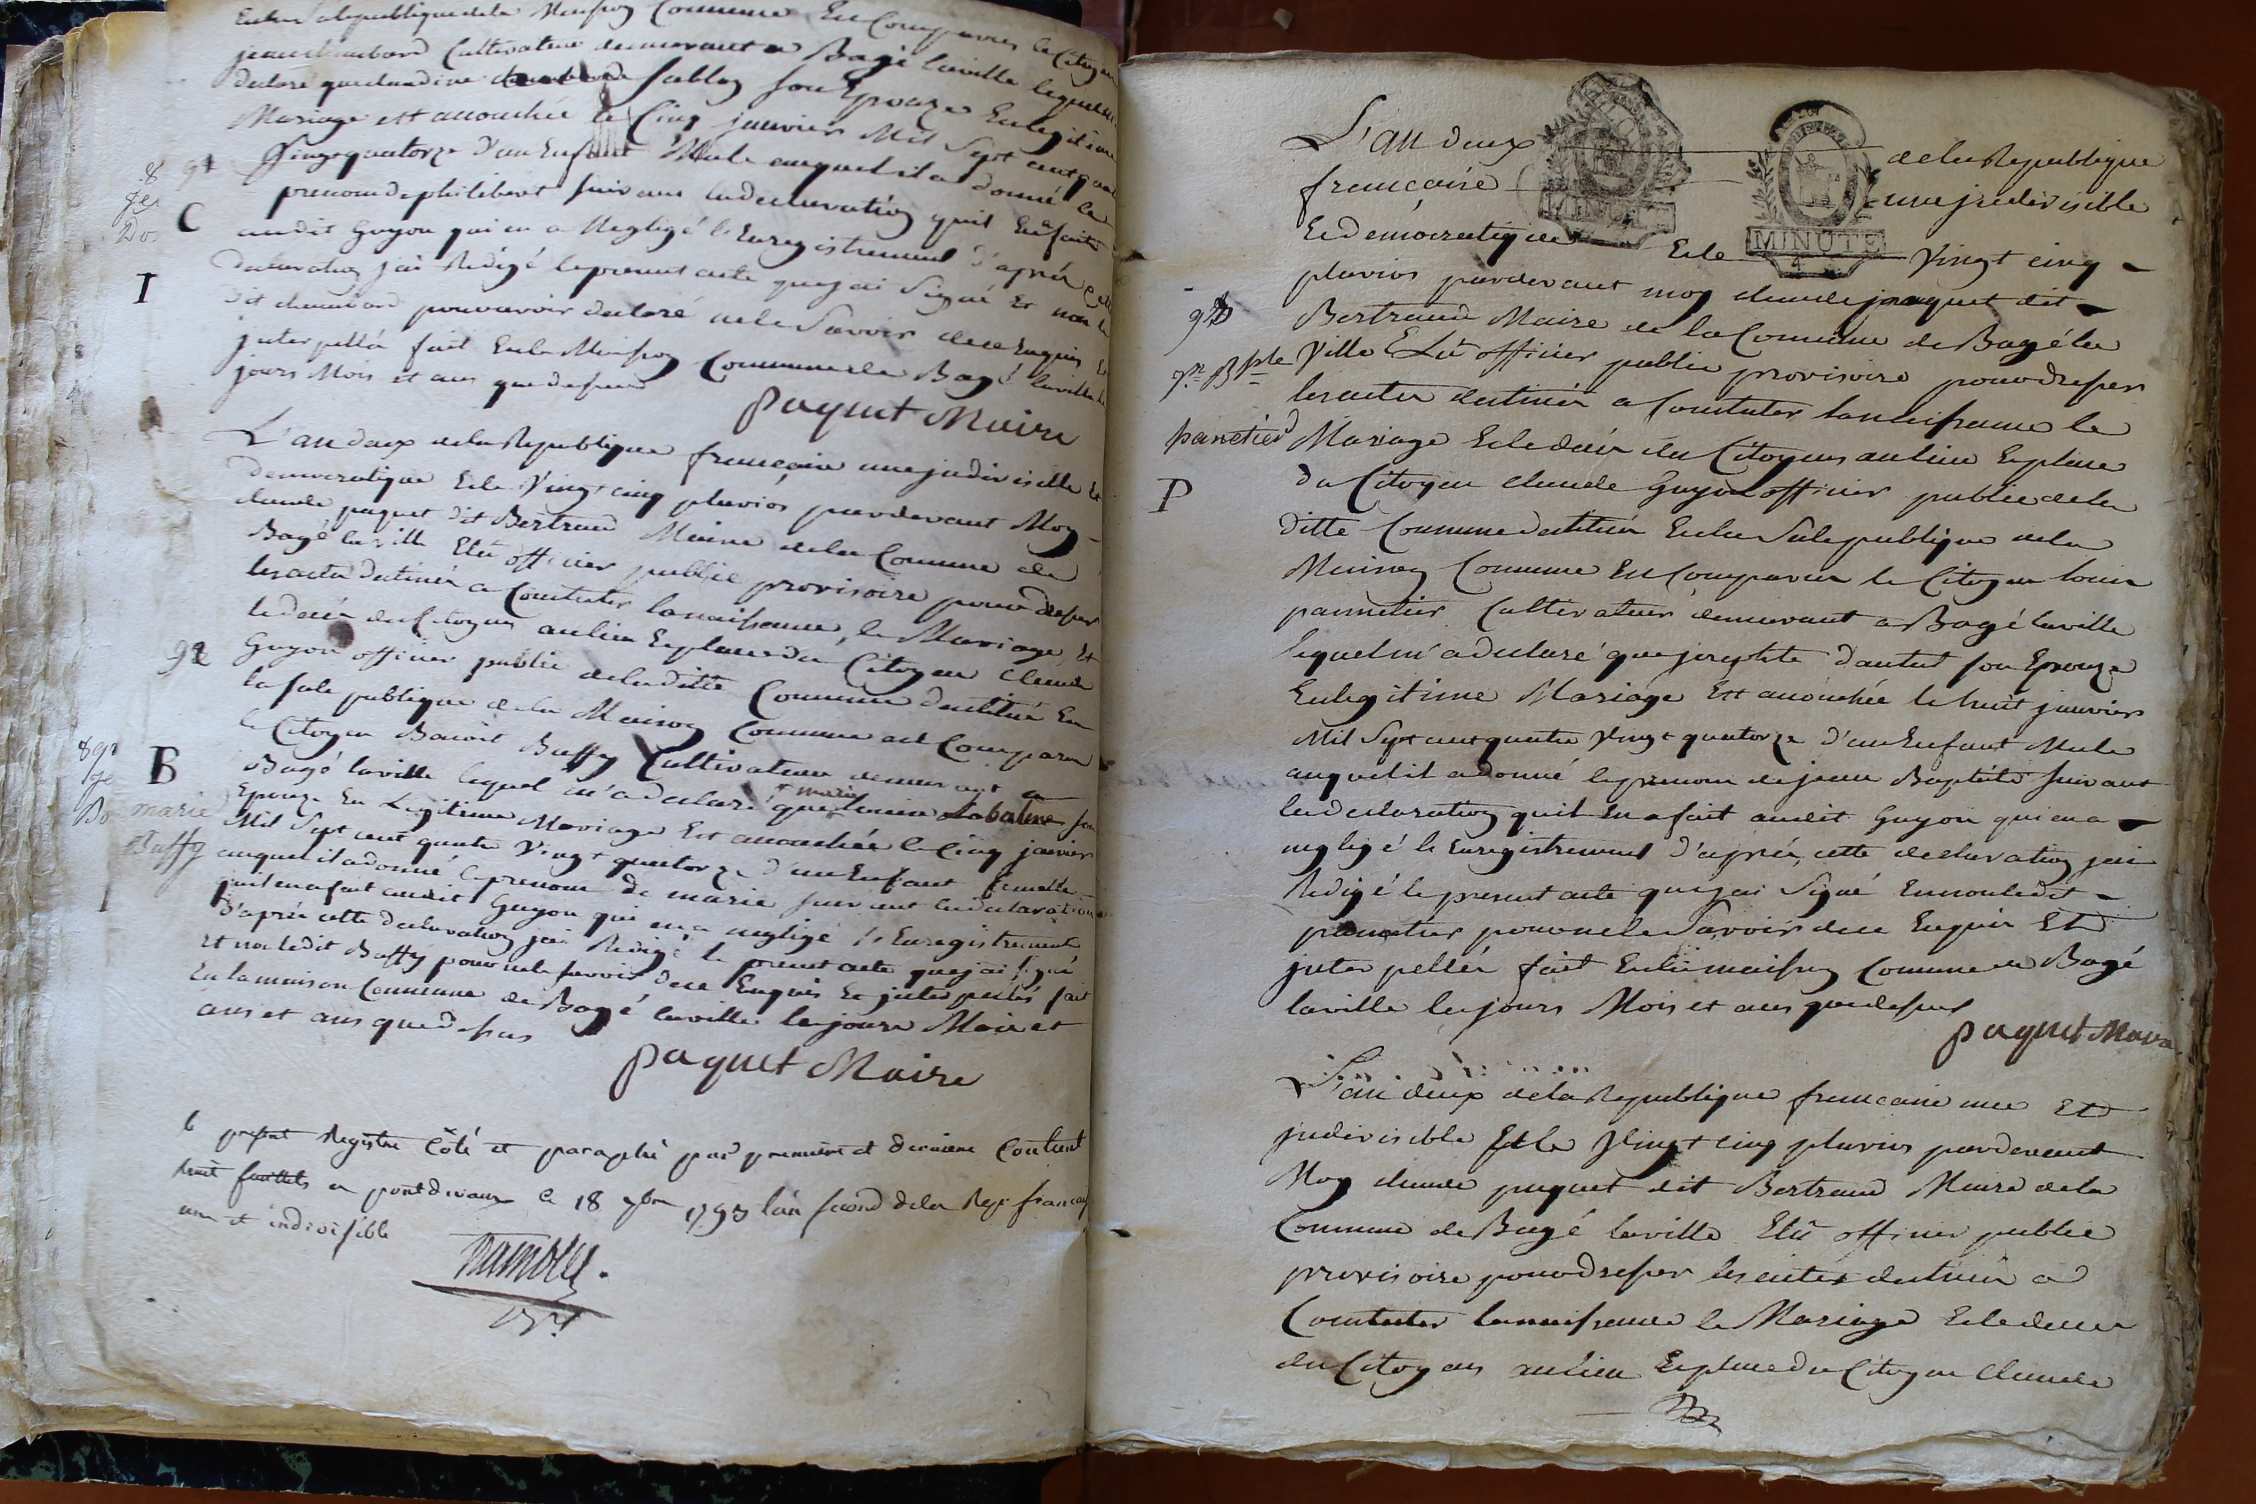 Enlasalepublique dela Maison Commune En Comparus le Citoyen
jean chambard Cultivateur demeurant a Bagé laville lequel
declaré que claudine sablon son Epouze En legitime
Mariage est accouchée le Cinq janvier Mil Sept cent quatre
Vingt quatorze d'un Enfant Male auquel il a donné le
prenom de philibert suivant la declaration quil En a faite
audit Guyon qui en a Negligé l'Enregistrement d'aprés cette
declaration jai Redigé le present acte que jai Signé Et non le
dit chambard pour avoir declaré ne le Savoir de ce Enquis Et
jnterpellé fait En la Maison Commune de Bagé laville les
jours Mois et ans que dessus
paquet Maire
L'an deux de la Republique francaise une jndivisible Et
democratique Et le Vingt cinq pluvios pardevant Moy
claude paquet dit Bertrand Maire de la Commune de
Bagé laville Elû officier public provisoire pour dresser
les actes destinés a Constater la naissance, le Mariage, Et
le decés des Citoyens au lieu Et place du Citoyen Claude
Guyon officier public de la ditte Commune destitué En
la sale publique de la Maison Commune est Comparu
le Citoyen Benoit Buffy Cultivateur demeurant a
Bagé laville lequel m'a declaré que marie Louise Labalme son
Epouze En Legitime Mariage Est accouchée le Cinq janvier
Mil Sept cent quatre Vingt quatorze d'un Enfant femelle
auquel il a donné le prenom de marie suivant la declaration
quil en a fait audit Guyon qui en a negligé l'Enregistrement
d'aprés cette declaration jai Redigé le present acte que jai signé
et non ledit Buffy pour ne le savoir de ce Enquis Et jnterpellé fait
En la maison Commune de Bagé laville les jours Mois et
ans et ans que dessus
paquet Maire
marie
Buffy
C
I
B
le present Registre Côté et paraphé par premiere et derniere Contient
huit feuillets a pontdevaux le 18 1793 lan second de la Rep. francaise
une et indivisible
MINUTE
MINUTE
L'an deux de la Republique
francaise une jndivisible
Et démocratique Et le Vingt cinq
pluvios pardevant moy claude paquet dit
Bertrand Maire de la Commune de Bagé la
Ville Elû officier public provisoire pour dresser
les actes destinés a Constater la naissance le
Mariage Et le décés des Citoyens au lieu Et place
du Citoyen claude Guyon officier public de la
ditte Commune destitué En la Sale publique de la
Maison Commune En Comparus le Citoyen louis
pannetier Cultivateur demeurant a Bagé laville
lequel m'a declaré que josephte dantet son Epouze
En legitime Mariage Est accouchée le huit janvier
Mil Sept cent quatre Vingt quatorze d'un Enfant Male
auquel il a donné le prenom de jean Baptiste suivant
la declaration quil En a fait audit Guyon qui en a
negligé le Enregistrement d'aprés cette declaration jai
Redigé le present acte que jai Signé Et non le dit
pannetier pour ne le Savoir de ce Enquis Et
jnterpellés fait En la maison Commune de Bagé
laville les jours Mois et ans que dessus
paquet Maire
panetier
P
L'an deux de la Republique francaise une Et
jndivisible Et le Vingt cinq pluvios pardevant
Moy claude paquet dit Bertrand Maire de la
Commune de Bagé laville Elû officier public
provisoire pour dresser les actes destinés a
Constater la naissance le Mariage Et le deces
des Citoyens au lieu Et place du Citoyen Claude